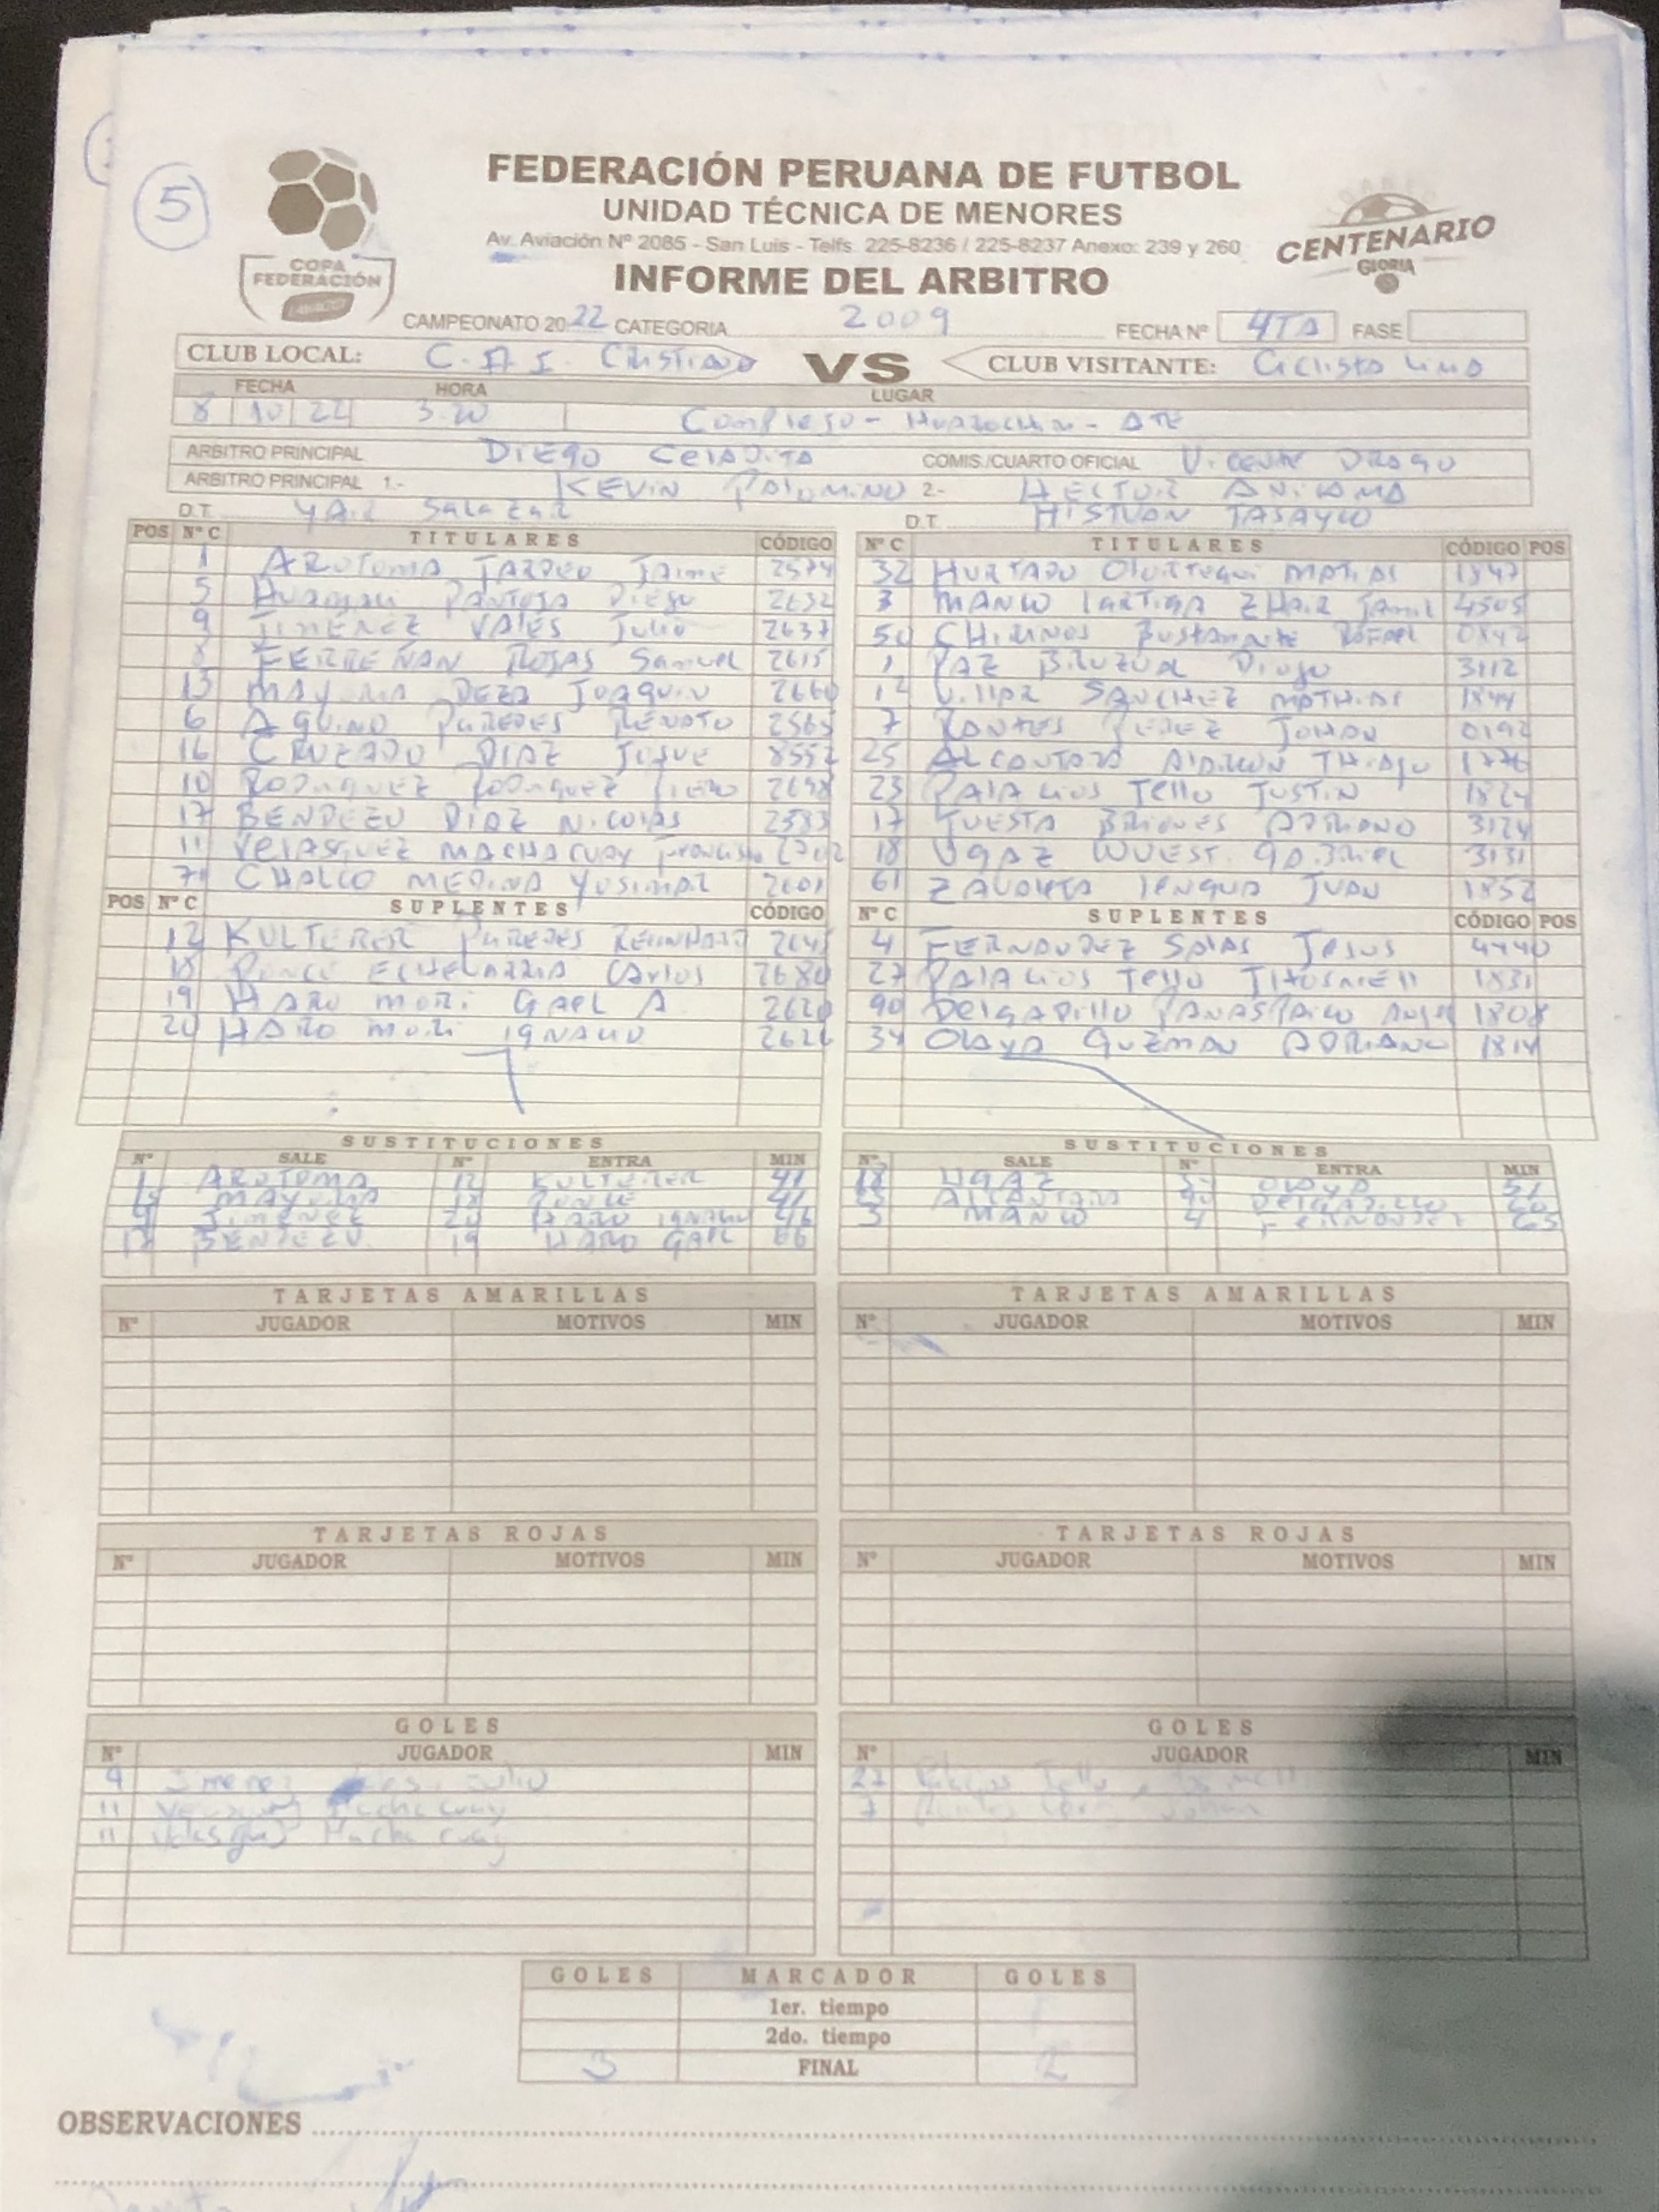 5
FEDERACIÓN PERUANA DE FUTBOL
UNIDAD TÉCNICA DE MENORES
Av. Aviación Nº 2085 - San Luis - Telfs. 225-8236 / 225-8237 Anexo: 239 y 260
COPA FEDERACIÓN
CENTENARIO
GLORIA
INFORME DEL ARBITRO
CAMPEONATO 2022 CATEGORIA 2009 FECHA Nº 4TA FASE
CLUB LOCAL: C.A.I. Cristiano VS CLUB VISITANTE: Ciclista Lima
FECHA HORA LUGAR
8 10 22 3.20 Complejo - Huarochiri - ATE
ARBITRO PRINCIPAL DIEGO Celadita COMIS./CUARTO OFICIAL VICENTE DRAGO
ARBITRO PRINCIPAL 1.- KEVIN PALOMINO 2.- HECTOR ANICAMA
D.T. YAIR Salazar D.T. HISTVAN TASAYCO
POS Nº C TITULARES CÓDIGO Nº C TITULARES CÓDIGO POS
1 AROTOMA Jaime 2574 32 HURTADO MATIAS 1847
5 PANTOJA Diego 2632 3 MANCO LARTIGA ZHAIR Jamil 4505
9 JIMENEZ VALES Julio 2637 50 CHIRINOS BUSTAMANTE RAFAEL 0842
8 FERREÑAN ROJAS Samuel 2615 1 PAZ Diego 3112
13 MAYUMA DEZA JOAQUIN 2660 12 VILLAR SANCHEZ MATHIAS 1844
6 AQUINO PAREDES RENATO 2565 7 PEREZ JOHAN 0192
16 CRUZADO DIAZ JOSUE 8552 25 ALCANTARA THIAGO 1776
10 RODRIGUEZ RODRIGUEZ PIERO 2698 23 PALACIOS Tello JUSTIN 1824
17 BENDEZU DIAZ NICOLAS 2583 17 TUESTA BRIONES ADRIANO 3124
11 VELASQUEZ MACHACUAY Francisco 2702 18 UGAZ WUEST GABRIEL 3131
7 CHALCO MEDINA YUSIMAR 2601 61 ZAVALETA LENGUA JUAN 1852
POS Nº C SUPLENTES CÓDIGO Nº C SUPLENTES CÓDIGO POS
12 KULTERER PAREDES REINHARD 2645 4 FERNANDEZ SALAS JESUS 4440
18 PONCE ECHEVARRIA Carlos 2680 27 PALACIOS Tello 1831
19 HARO MORI GAEL A 2620 90 DELGADILLO 1808
20 HARO MORI IGNACIO 2621 34 OLAYA GUZMAN ADRIANO 1814
SUSTITUCIONES SUSTITUCIONES
Nº SALE Nº ENTRA MIN Nº SALE Nº ENTRA MIN
1 AROTOMA 12 KULTERER 41 18 UGAZ OLAYA 51
MAYUMA 18 PONCE 41 ALCANTARA DELGADILLO 60
9 JIMENEZ 20 HARO IGNACIO 46 3 MANCO 4 FERNANDEZ 65
17 BENDEZU 19 HARO GAEL 66
TARJETAS AMARILLAS TARJETAS AMARILLAS
Nº JUGADOR MOTIVOS MIN Nº JUGADOR MOTIVOS MIN
TARJETAS ROJAS TARJETAS ROJAS
Nº JUGADOR MOTIVOS MIN Nº JUGADOR MOTIVOS MIN
GOLES GOLES
Nº JUGADOR MIN Nº JUGADOR MIN
9 Jimenez Julio 27 Palacios Tello
11 Velasquez Machacuay 7 Johan
11 Velasquez Machacuay
GOLES MARCADOR GOLES
1er. tiempo
2do. tiempo
3 FINAL 2
OBSERVACIONES